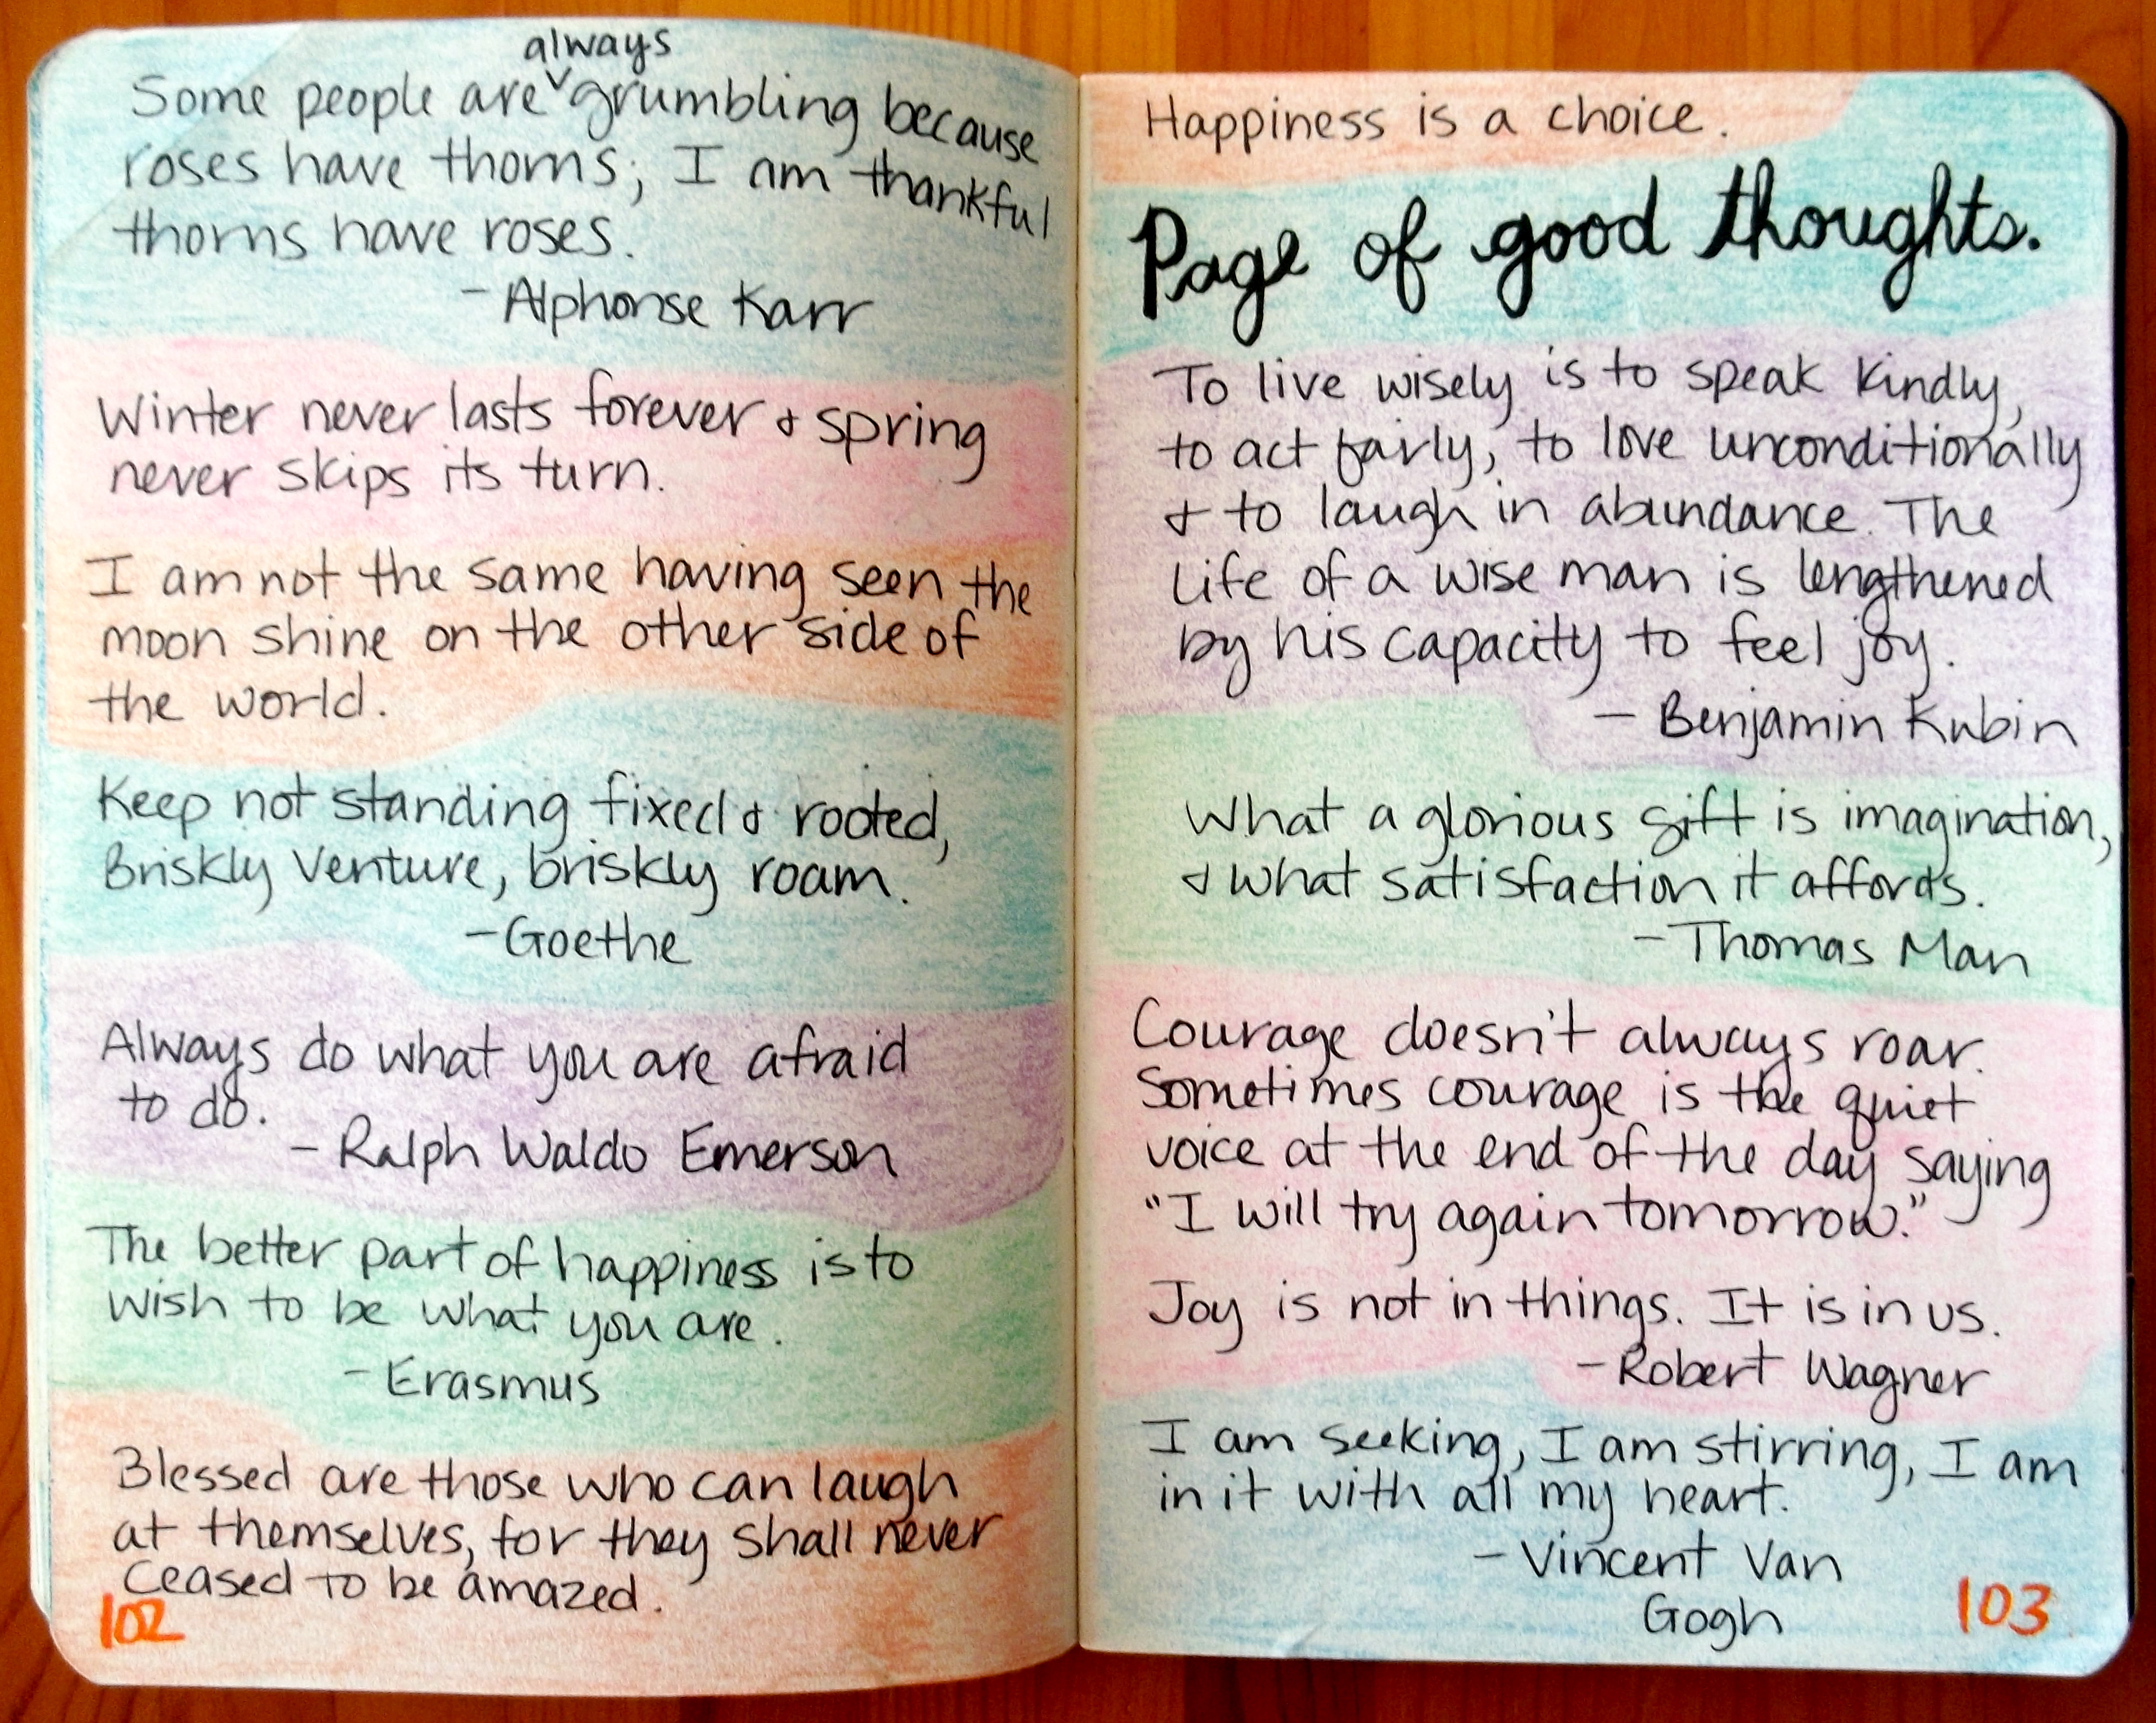 Some people are always grumbling because
roses have thorns; I am thankful
thorns have roses.
- Alphonse Karr
Winter never lasts forever & spring
never skips its turn.
I am not the same having seen the
moon shine on the other side of
the world.
Keep not standing fixed & rooted,
Briskly venture, briskly roam.
- Goethe
Always do what you are afraid
to do.
- Ralph Waldo Emerson
The better part of happiness is to
wish to be what you are.
- Erasmus
Blessed are those who can laugh
at themselves, for they shall never
ceased to be amazed.
102
Happiness is a choice.
Page of good thoughts.
To live wisely is to speak kindly,
to act fairly, to love unconditionally
& to laugh in abundance. The
life of a wise man is lengthened
by his capacity to feel joy.
- Benjamin Kubin
What a glorious gift is imagination,
& what satisfaction it affords.
- Thomas Man
Courage doesn't always roar.
Sometimes courage is the quiet
voice at the end of the day saying
"I will try again tomorrow."
Joy is not in things. It is in us.
- Robert Wagner
I am seeking, I am stirring, I am
in it with all my heart.
- Vincent Van
Gogh
103